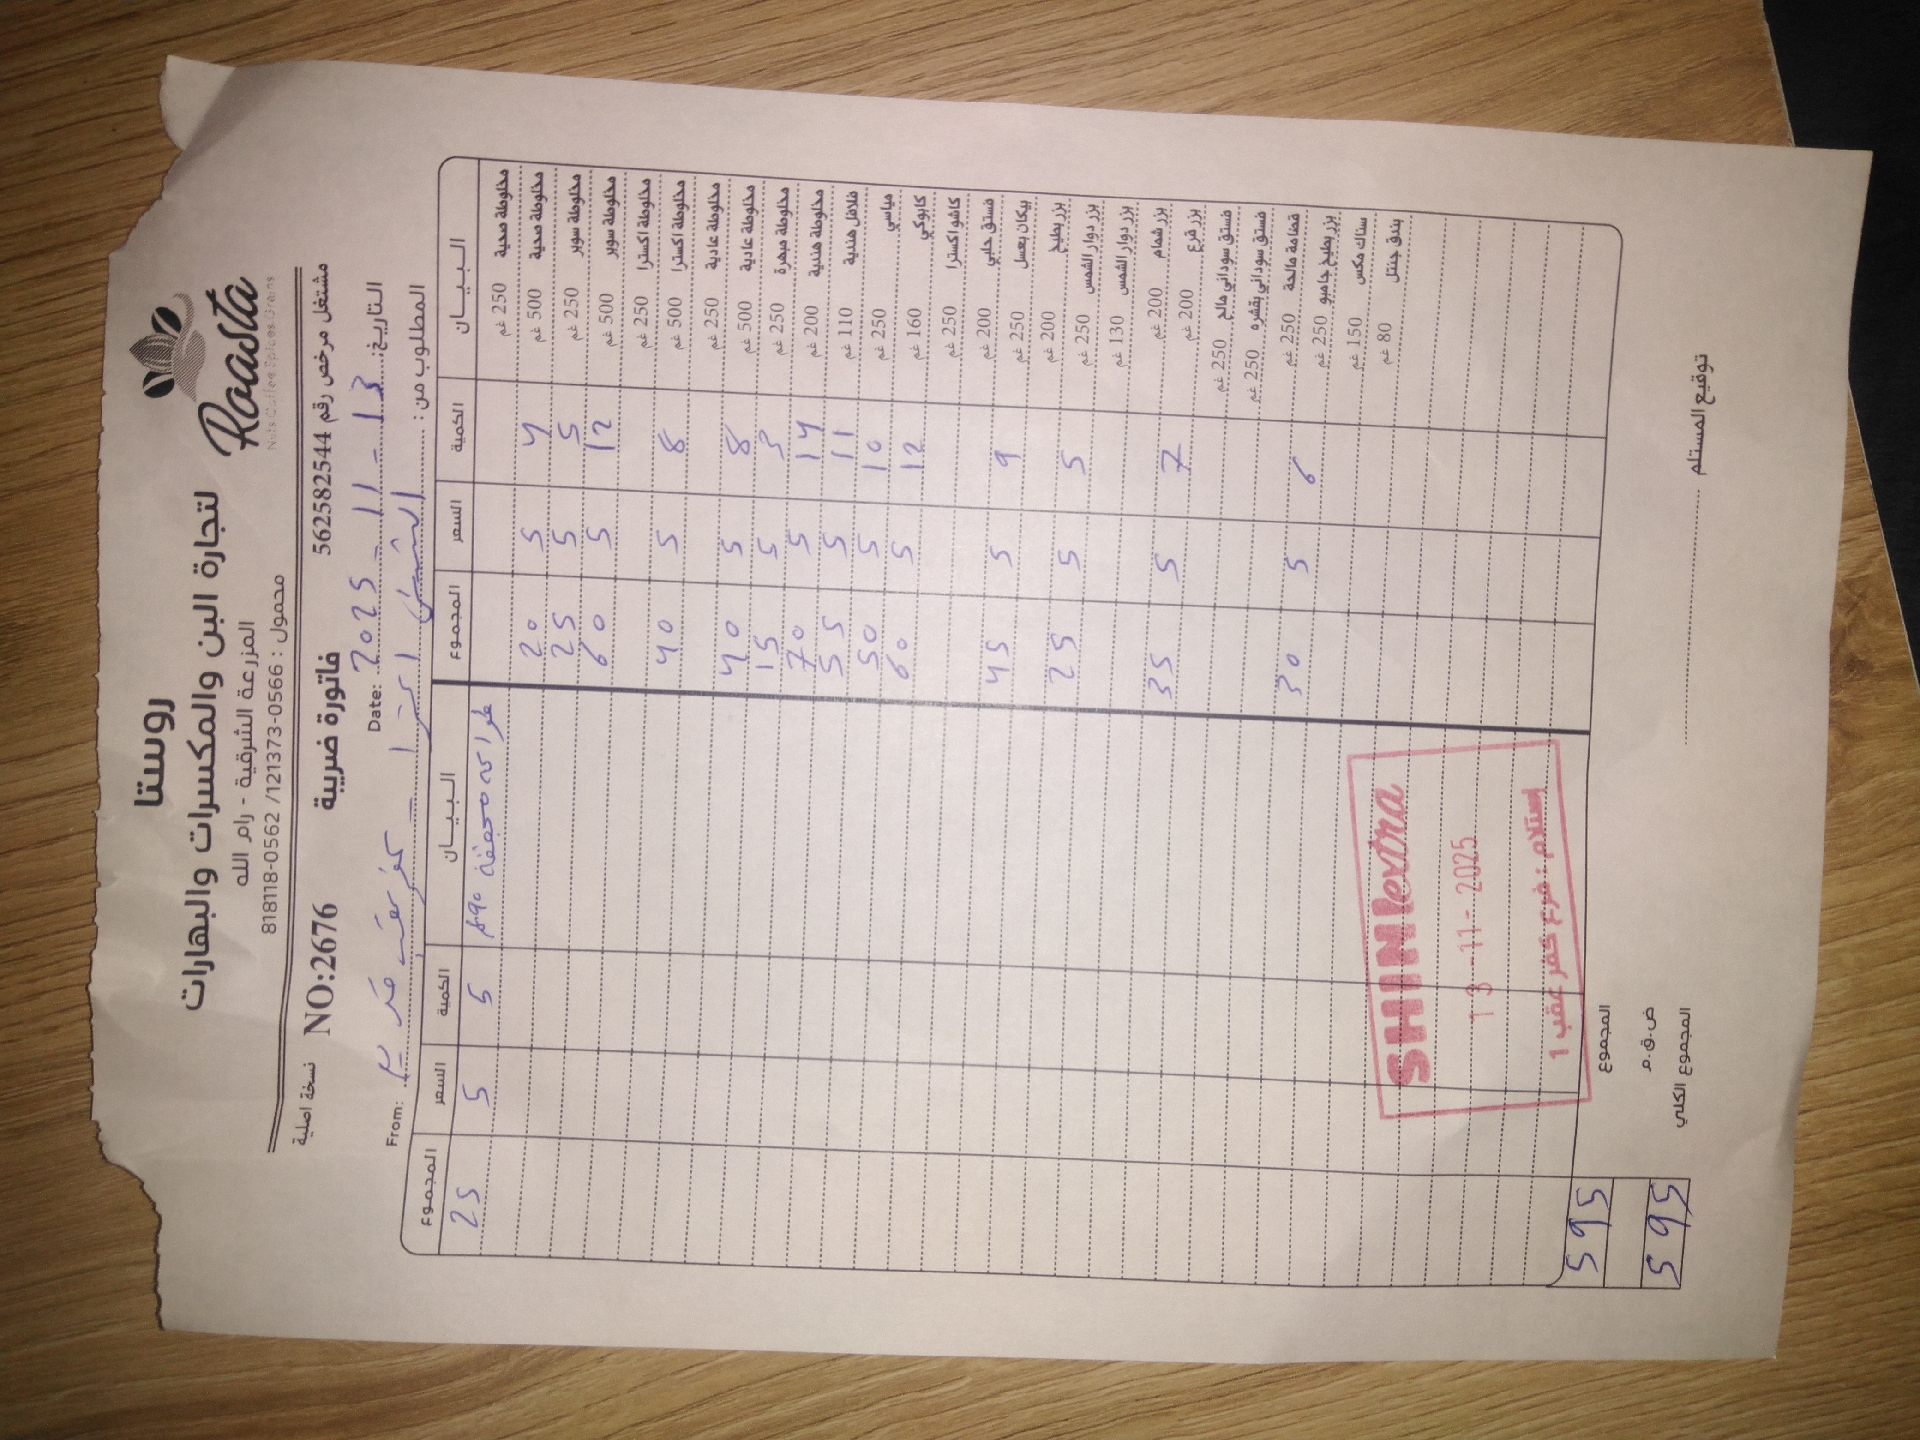 روستا
لتجارة البن والمكسرات والبهارات
المزرعة الشرقية - رام الله
محمول : 0566-121373/ 0562-818118
Roasta
Nuts.Coffee.Spices.Grains
مشتغل مرخص رقم 562582544 فاتورة ضريبة NO:2676 نسخة اصلية
التاريخ: 13 - 11 - 2025 Date:
المطلوب من : الشني اكسترا - كفر عقب From:
البيـــان الكمية السعر المجموع البيـــان الكمية السعر المجموع
مخلوطة صحية 250 غم محففة 90غم 5 5 25
مخلوطة صحية 500 غم 4 5 20
مخلوطة سوبر 250 غم 5 5 25
مخلوطة سوبر 500 غم 12 5 60
مخلوطة اكسترا 250 غم
مخلوطة اكسترا 500 غم 8 5 40
مخلوطة عادية 250 غم
مخلوطة عادية 500 غم 8 5 40
مخلوطة مبهرة 250 غم 3 5 15
مخلوطة هندية 200 غم 14 5 70
فلافل هندية 110 غم 11 5 55
مياسي 250 غم 10 5 50
كابوكي 160 غم 12 5 60
كاشو اكسترا 250 غم
فستق حلبي 200 غم 9 5 45
بيكان بعسل 250 غم
بزر بطيخ 200 غم 5 5 25
بزر دوار الشمس 250 غم
بزر دوار الشمس 130 غم
بزر شمام 200 غم 7 5 35
بزر قرع 200 غم
فستق سوداني مالح 250 غم
فستق سوداني بقشره 250 غم
قضامة مالحة 250 غم 6 5 30
بزر بطيخ جامبو 250 غم
سناك مكس 150 غم
بندق جنتل 80 غم
SHINIextra
13 -11- 2025
إستلام : فرع كفر عقب 1
المجموع 595
ض.ق.م
المجموع الكلي 595
توقيع المستلم